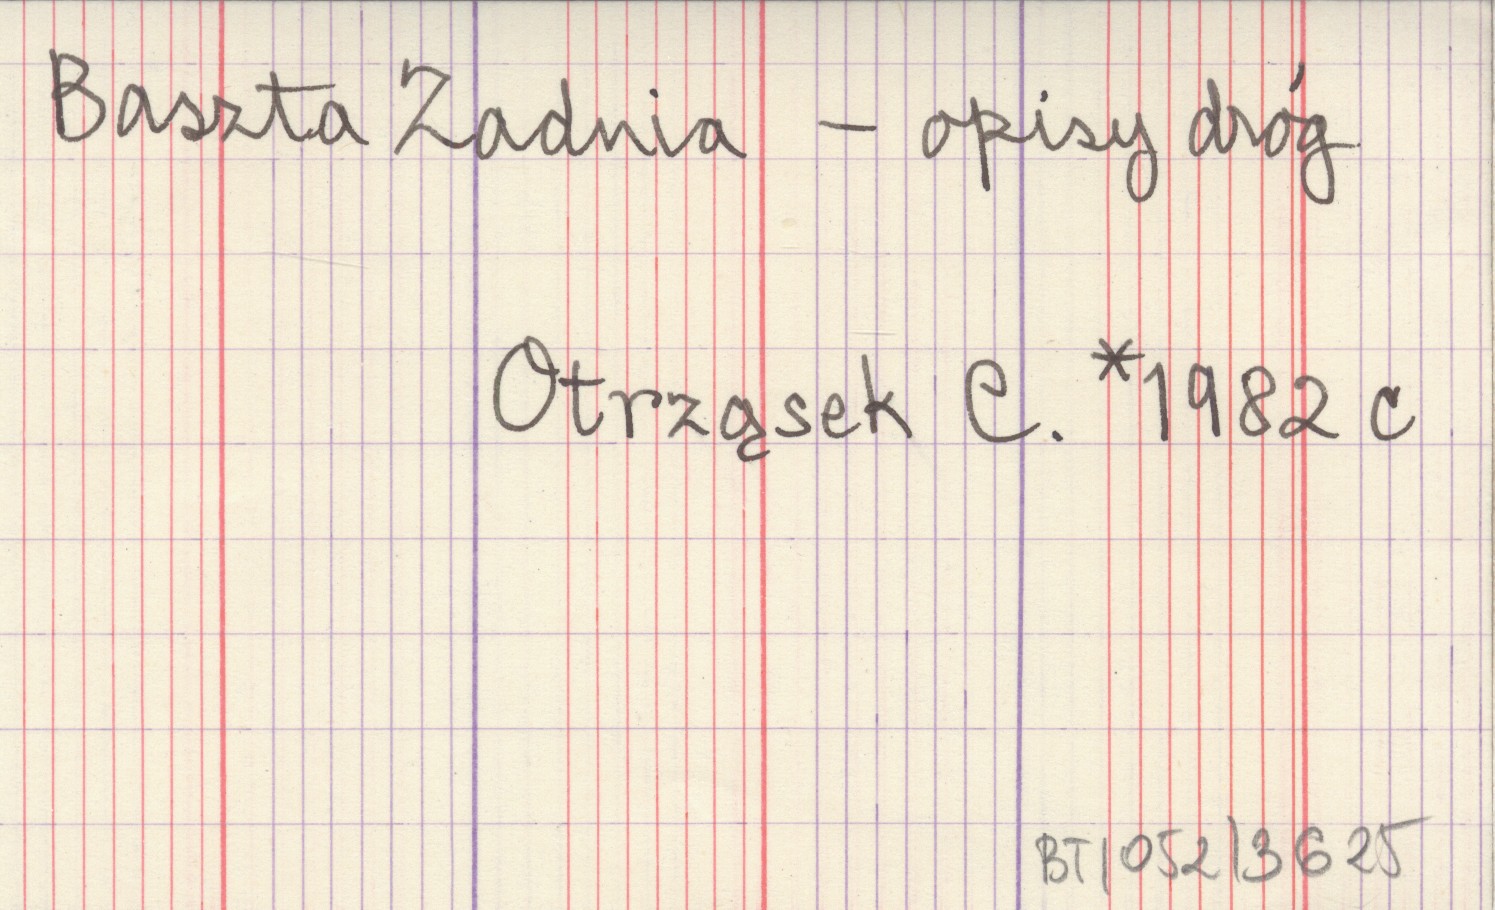 Baszta Zadnia - opisy dróg
Otrząsek C. *1982 c
BT/052/3625